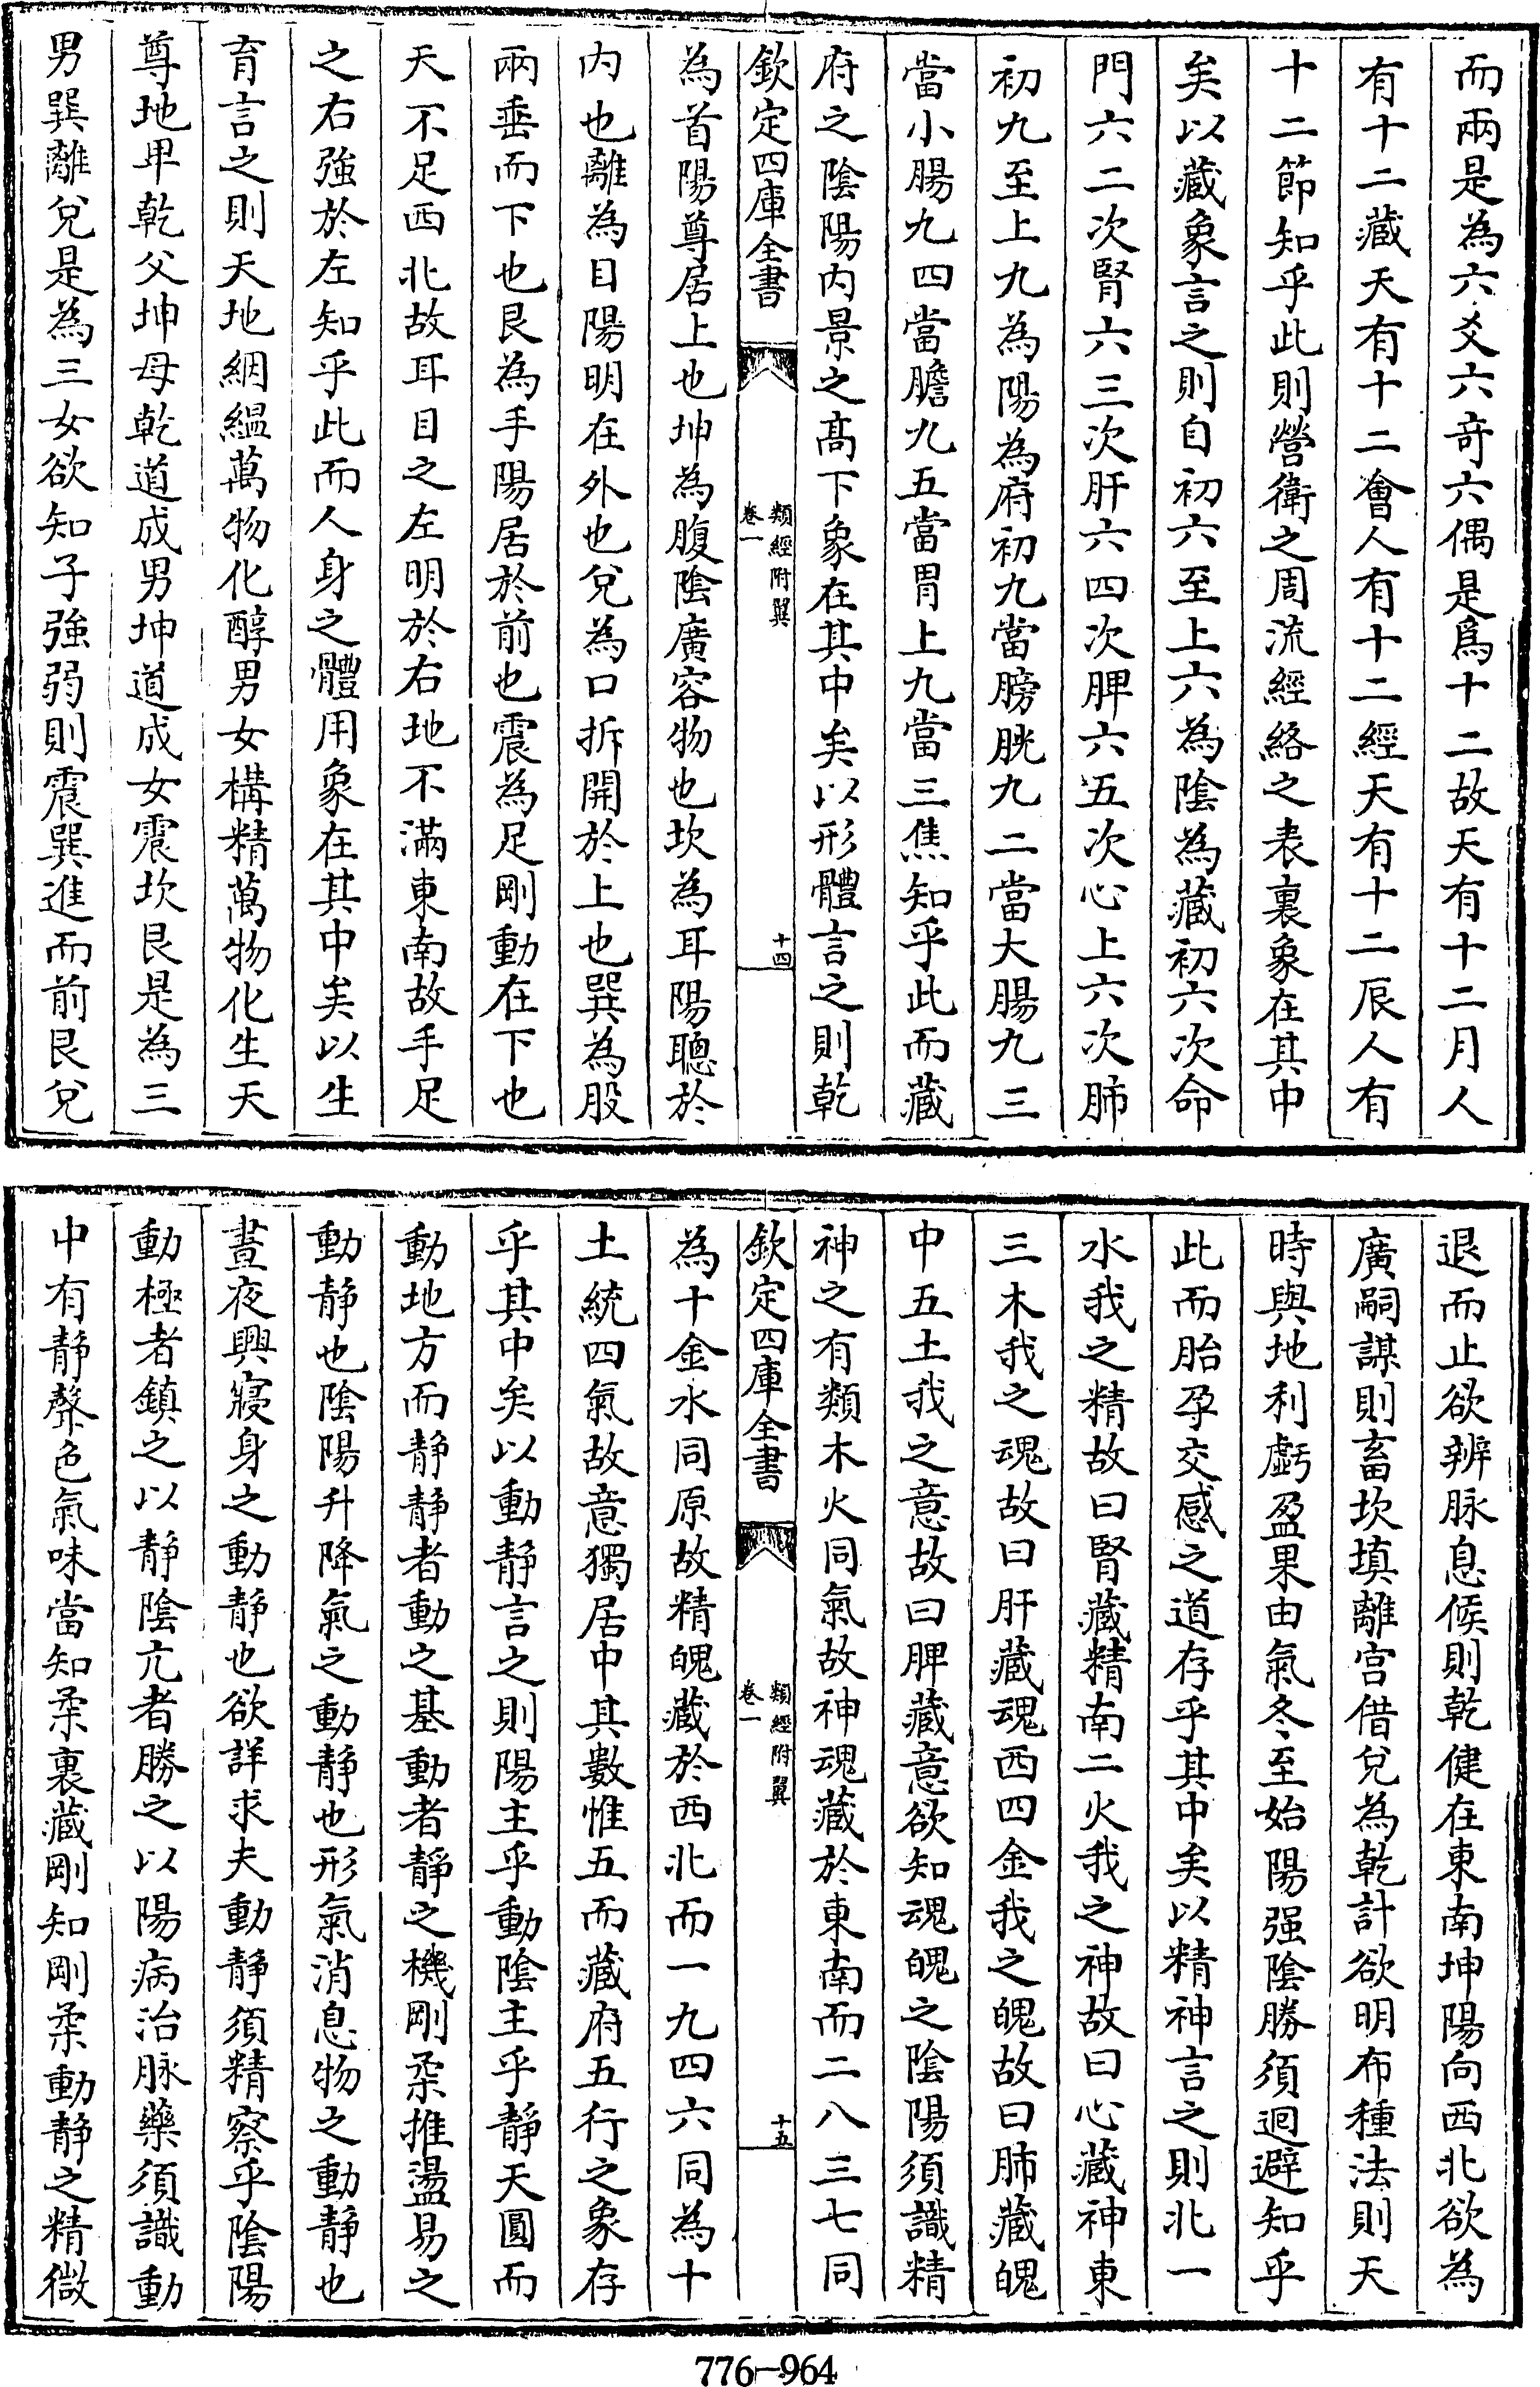 而兩是為六爻六竒六偶是爲十二故天有十二月人
有十二藏天有十二會人有十二經天有十二辰人有
十二節知乎此則營衛之周流經絡之表裏象在其中
矣以藏象言之則自初六至上六為陰為藏初六次命
門六二次腎六三次肝六四次脾六五次心上六次肺
初九至上九為陽為府初九當膀胱九二當大腸九三
當小腸九四當膽九五當胃上九當三焦知乎此而藏
府之陰陽内景之髙下象在其中矣以形體言之則乾
欽定四庫全書
類經附翼
卷一
十四
為首陽尊居上也坤為腹陰廣容物也坎為耳陽聰於
内也離為目陽明在外也兌為口拆開於上也巽為股
兩垂而下也艮為手陽居於前也震為足剛動在下也
天不足西北故耳目之左明於右地不滿東南故手足
之右強於左知乎此而人身之體用象在其中矣以生
育言之則天地絪緼萬物化醇男女構精萬物化生天
尊地卑乾父坤母乾道成男坤道成女震坎艮是為三
男巽離兌是為三女欲知子強弱則震巽進而前艮兌
退而止欲辨脉息候則乾健在東南坤陽向西北欲為
廣嗣謀則畜坎填離宫借兌為乾計欲明布種法則天
時與地利虧盈果由氣冬至始陽强陰勝須迴避知乎
此而胎孕交感之道存乎其中矣以精神言之則北一
水我之精故曰腎藏精南二火我之神故曰心藏神東
三木我之魂故曰肝藏魂西四金我之魄故曰肺藏魄
中五土我之意故曰脾藏意欲知魂魄之陰陽須識精
神之有類木火同氣故神魂藏於東南而二八三七同
欽定四庫全書
類經附翼
卷一
十五
為十金水同原故精魄藏於西北而一九四六同為十
土統四氣故意獨居中其數惟五而藏府五行之象存
乎其中矣以動静言之則陽主乎動陰主乎靜天圓而
動地方而静静者動之基動者靜之機剛柔推盪易之
動静也陰陽升降氣之動静也形氣消息物之動靜也
晝夜興寢身之動靜也欲詳求夫動靜須精察乎陰陽
動極者鎮之以靜陰亢者勝之以陽病治脉藥須識動
中有静聲色氣味當知柔裏藏剛知剛柔動靜之精微
776-964